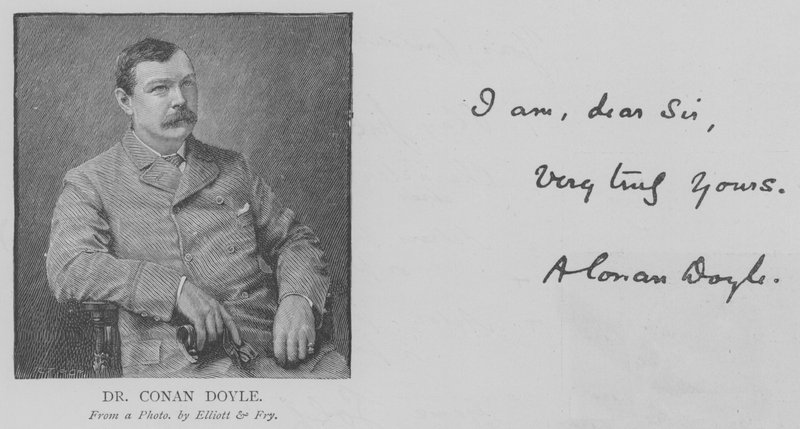 DR. CONAN DOYLE.
From a Photo. by Elliott & Fry.
I am, dear Sir,
Very truly yours.
A Conan Doyle.